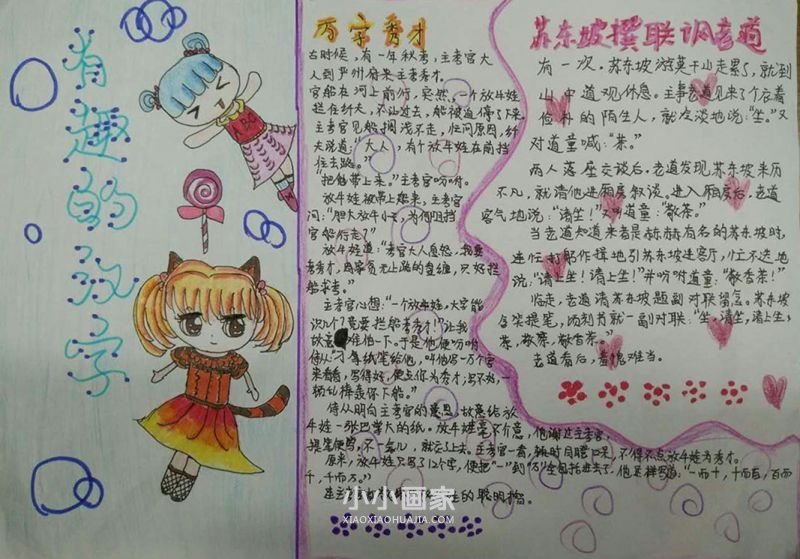 有趣的汉字
万字秀才
古时候，有一年秋考，主考官大
人到严州府来主考秀才。
官船在河上前行，突然，一个放牛娃
拦住纤夫，不让过去，船被迫停了下来。
主考官见船搁浅不走，忙问原因，纤
夫说道："大人，有个放牛娃在前挡
住去路。"
"把他带上来。"主考官吩咐。
放牛娃被带上船来，主考官
问："胆大放牛小子，为何阻挡
官船行走？"
放牛娃道："考官大人息怒，我要
考秀才，因家贫无上路的盘缠，只好拦
船求考。"
主考官心想："一个放牛娃，大字能
识几个？竟要拦船考秀才！"让我
难他一下。于是他便吩咐
纸笔给他，叫他写一万个字
来看看，写得好，便点你为秀才；写不好，一
顿乱棒轰你下船。"
侍从明白主考官的意思，故意给放
牛娃一张巴掌大的纸。放牛娃毫不介意，他谢过主考官，
提笔便写，不一会儿，就交了上去。主考官一看，顿时目瞪口呆，不得不点放牛娃为秀才。
原来，放牛娃只写了12个字，便把"一"到"万"全包括进去了，他是这样写道："一而十，十而百，百而
千，千而万。"
的聪明
苏东坡撰联讽老道
有一次，苏东坡游莫干山走累了，就到
山中道观休息。主事老道见来了个衣着
俭朴的陌生人，就冷淡地说："坐。"又
对道童喊："茶。"
两人落座交谈后，老道发现苏东坡来历
不凡，就请他进厢房叙谈。进入厢房后，老道
客气地说："请坐！"又叫道童："敬茶。"
当老道知道来者是赫赫有名的苏东坡时，
连忙打躬作揖地引苏东坡进客厅，忙不迭地
说："请上坐！请上坐！"并吩咐道童："敬香茶！"
临走，老道请苏东坡题副对联留念。苏东坡
含笑提笔，顷刻书就一副对联："坐，请坐，请上坐；
茶，敬茶，敬香茶。"
老道看后，羞愧难当。
小小画家
XIAOXIAOHUAJIA.COM